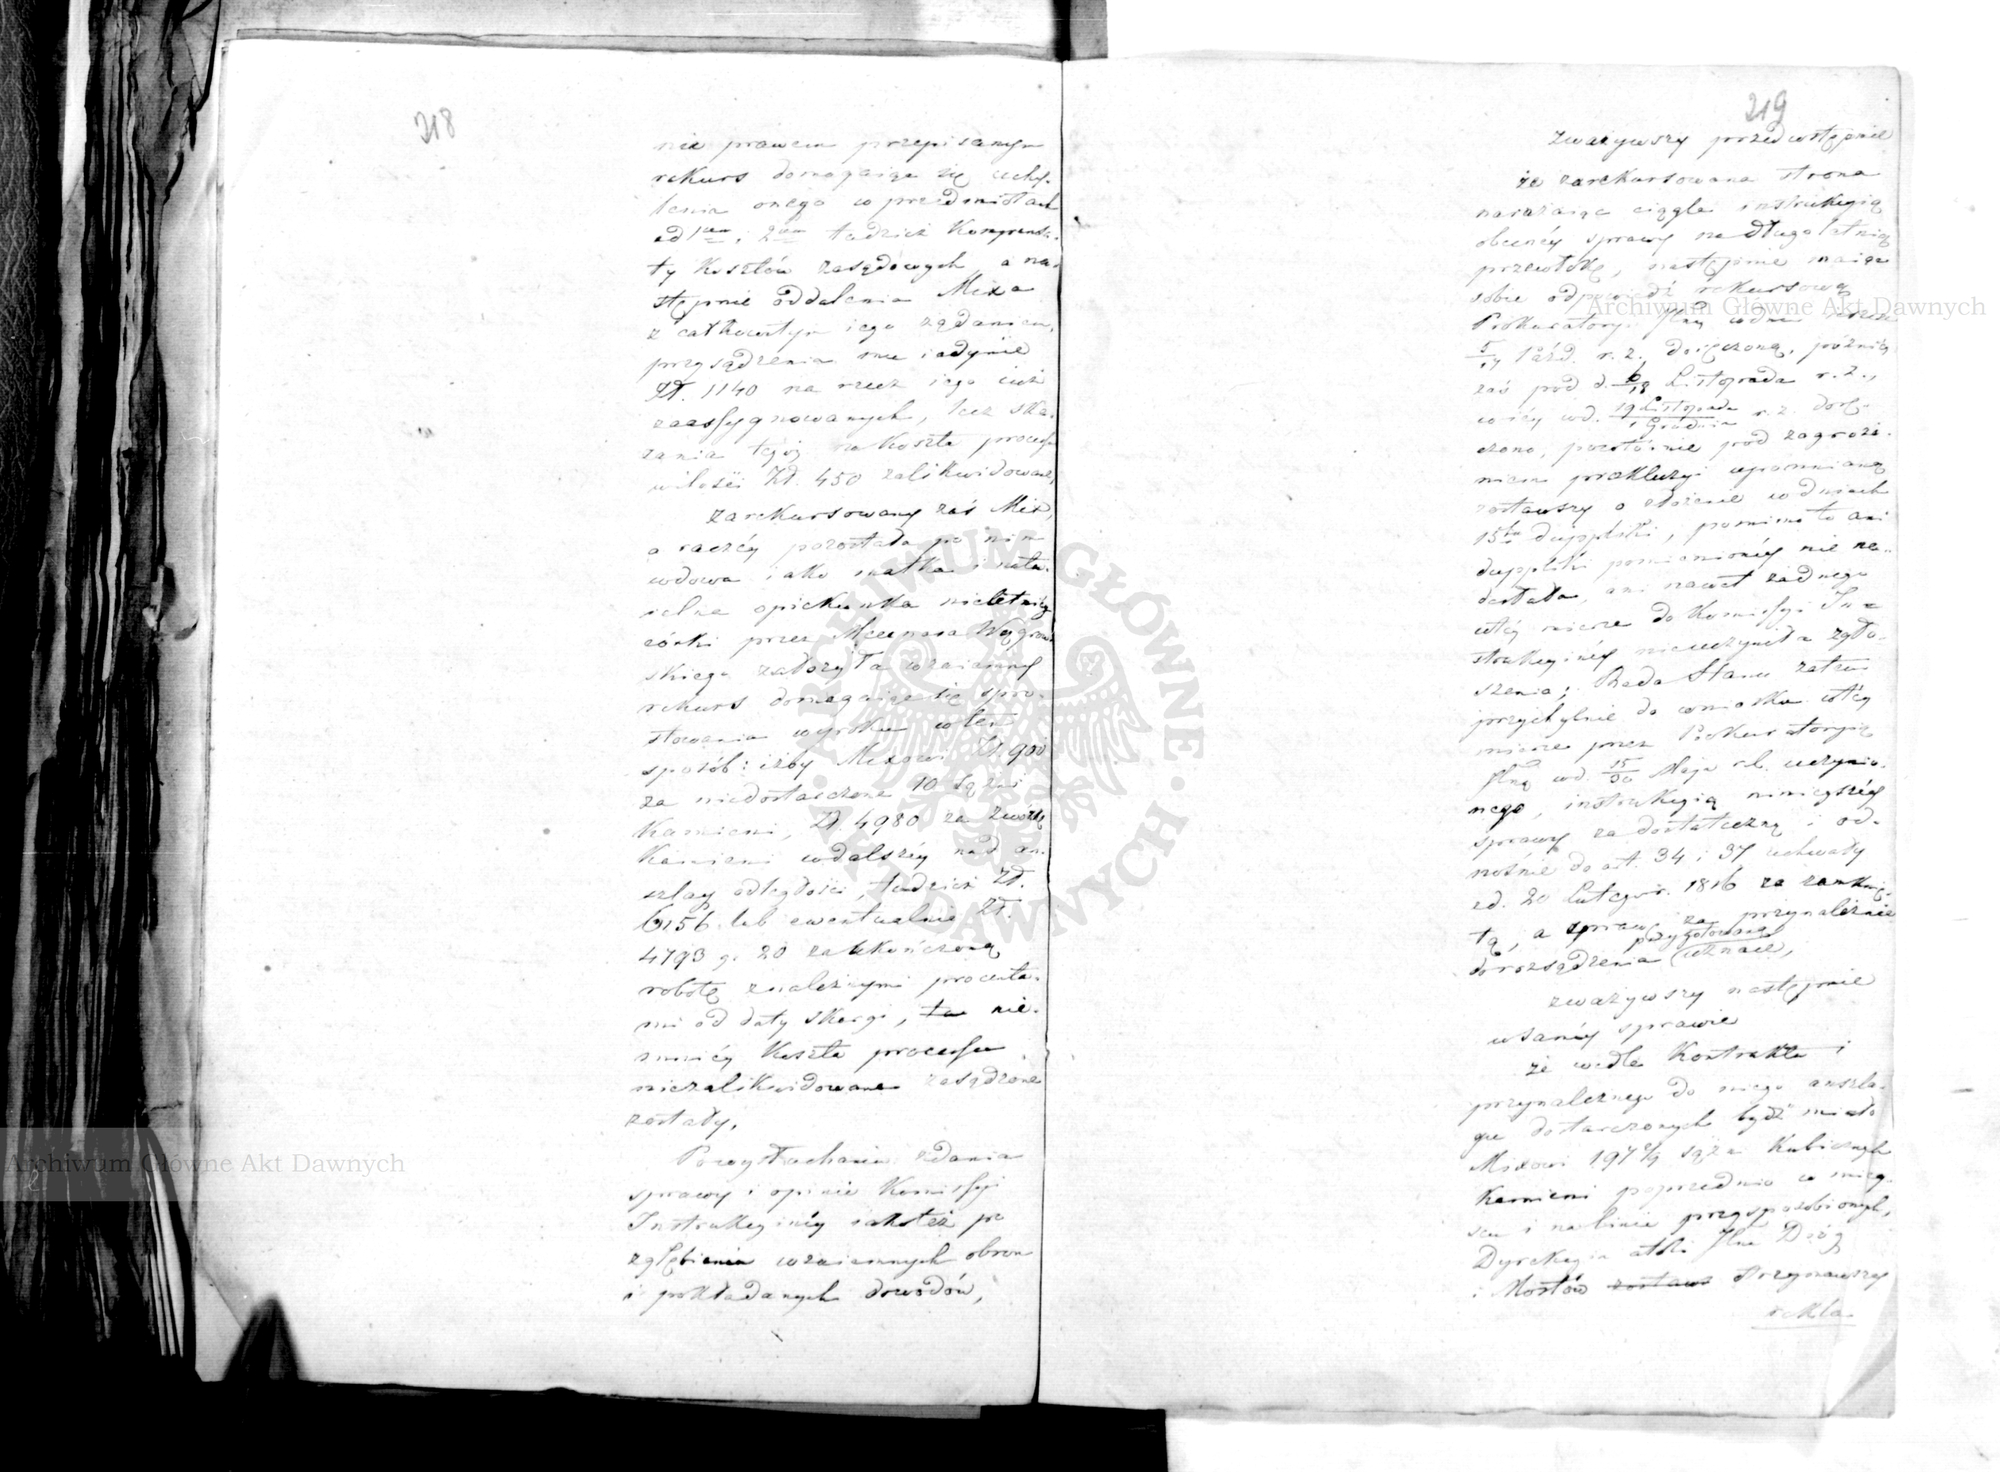 218
nie prawem przepisanym
rekurs domagaiąc się uchy-
lenia onego w przedmiotach
ad 1um, 2um tudzież Kompensa-
ty kosztów zasądowych a na-
stępnie oddalenia Mixa
z całkowitym iego żądaniem,
przysądzenia mu iedynie
Zł. 1140 na rzecz iego iuż
zaassygnowanych, lecz ska-
zania tejże na koszta processu
w ilości Zł. 450 zalikwidowane,
zarekursowany zaś Mix,
a raczéy pozostała po nim
wdowa iako matka i natu-
ralna opiekunka nieletniéy
córki przez Mecenasa Wągrow-
skiego założyła wzaiemny
rekurs domagaiąc się spro-
stowania wyroku w ten
sposób: iżby Mixowi Zł. 900
za niedostarczone 10 sążni
Kamieni, Zł. 4980 za zwózkę
Kamieni w dalszéy nad an-
szlag odległości, tudzież Zł.
6156 lub ewentualnie Zł.
4793 g. 20 za ukończoną
robotę z należnymi procenta-
mi od daty skargi, nie-
mniéy koszta processu
niezalikwidowane zasądzone
zostały.
Po wysłuchaniu zdania
sprawy i opinii Kommissyi
Instrukcyinéy iakoteż po
zgłębieniu wzaiemnych obron
i pokładanych dowodów,
219
Zważywszy przedwstępnie
że zarekursowana strona
narażaiąc ciągle instrukcyią
obecnéy sprawy na długoletnią
przewłokę, następnie maiąc
sobie odpowiedź rekursową
Prokuratoryi Jlnéy w dniu
5/17 Paźd. r. z. doręczoną, późniéy
zaś pod d. 6/18 Listopada r. z.,
w d. 19 Listopada / 1 Grudnia r. z. dorę-
czono, powtórnie pod zagroże-
niem prekluzyi upomnianą
zostawszy o złożenie w dniach
15tu duppliki, pomimo to ani
duppliki pomienionéy nie na-
desłała, ani nawet żadnego
w téy mierze do Kommissyi In-
strukcyinéy nieuczyniła zgło-
szenia; Rada Stanu zatem
przychylnie do wniosku w téy
mierze przez Prokuratoryią
Jlną w d. 15/30 Maja r. b. uczynio-
nego, instrukcyią ninieyszéy
sprawy za dostateczną i od-
nośnie do art. 34 i 37 uchwały
z d. 20 Lutego r. 1816 za zamknię-
tą, a sprawę za przynależnie
przygotowaną
do rozsądzenia uznaie,
zważywszy następnie
w saméy sprawie
że wedle Kontraktu i
przynależnego do niego anszla-
gu dostarczonych bydź miało
Mixowi 197 2/9 sąża kubicznych
Kamieni poprzednio w miey-
scu i na linii przysposobionych,
Dyrekcyia zaś Jlna Dróg
i Mostów zostaws Przyznawszy
rekla-
Archiwum Główne Akt Dawnych
Archiwum Główne Akt Dawnych
ARCHIWUM GŁÓWNE AKT DAWNYCH